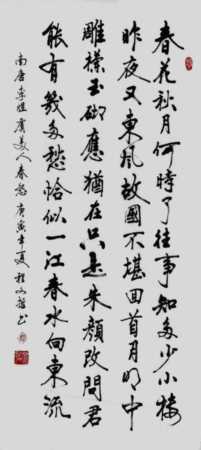 春花秋月何時了往事知多少小樓
昨夜又東風故國不堪回首月明中
雕欄玉砌應猶在只是朱顏改問君
能有幾多愁恰似一江春水向東流
南唐李煜虞美人春 庚寅年夏程書